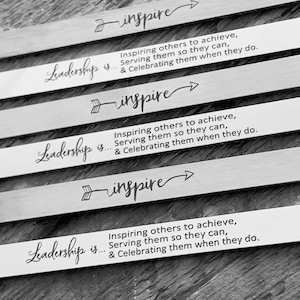 inspire
Leadership is... Inspiring others to achieve,
Serving them so they can,
& Celebrating them when they do.
inspire
Leadership is... Inspiring others to achieve,
Serving them so they can,
& Celebrating them when they do.
inspire
Leadership is... Inspiring others to achieve,
Serving them so they can,
& Celebrating them when they do.